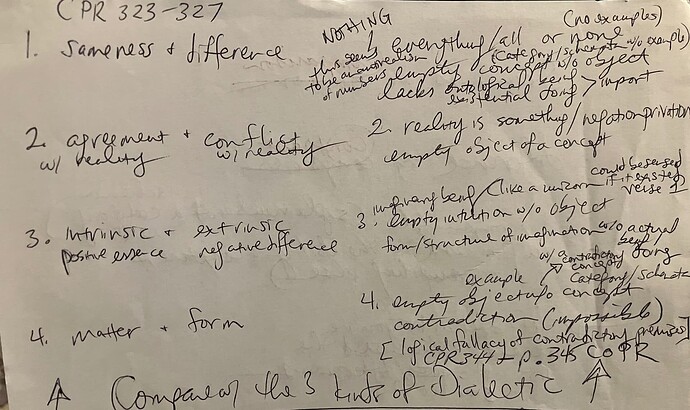 CPR 323-327
NOTHING
(no examples)
1. Sameness + difference
1 everything/all or none
this seems to be an antirealism of numbers
(category/schemata w/o example)
empty concept w/o object
lacks ontological being
existential doing > import
2. agreement + conflict
w/ reality w/ reality
2. reality is something/negation privation
empty object of a concept
3. intrinsic + extrinsic
positive essence negative difference
imaginary being (like a unicorn
could be sensed if it existed
verse 1
3. empty intuition w/o object
form/structure of imagination w/o actual being/doing
4. matter + form
example
w/ a contradictory concept
category/schemata
4. empty object w/o concept
contradiction (impossible)
[logical fallacy of contradictory premises]
CPR 344 p. 345 CoPR
Compare w/ the 3 kinds of Dialectic